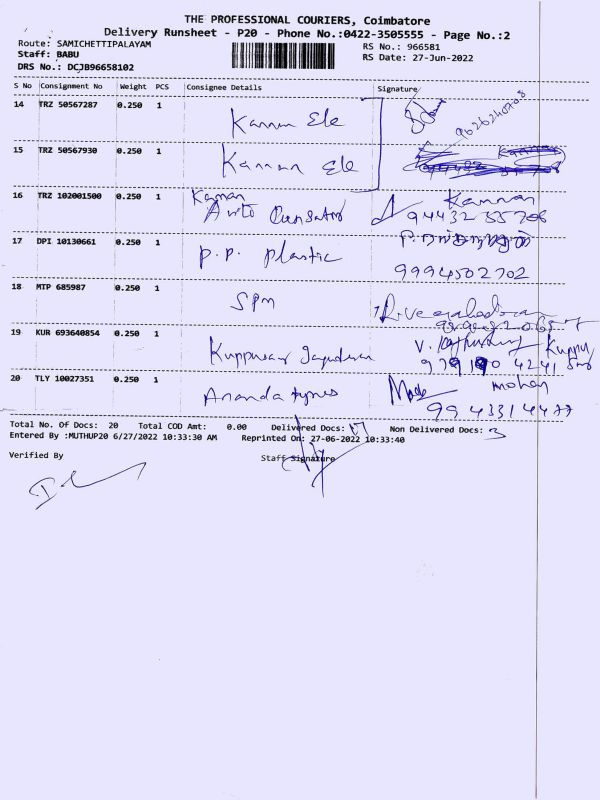 THE PROFESSIONAL COURIERS, Coimbatore
Delivery Runsheet - P20 - Phone No.:0422-3505555 - Page No.:2
Route: SAMICHETTIPALAYAM
RS No.: 966581
Staff: BABU
RS Date: 27-Jun-2022
DRS No.: DCJB96658102
S No Consignment No Weight PCS Consignee Details Signature
14 TRZ 50567287 0.250 1 Kannan Ele
9626240708
15 TRZ 50567930 0.250 1 Kannan Ele
16 TRZ 102001500 0.250 1 Kannan Kannan
Auto 9443255706
17 DPI 10130661 0.250 1 P.P. plastic
9994502702
18 MTP 685987 0.250 1 SPM
19 KUR 693640854 0.250 1 Kuppusamy
20 TLY 10027351 0.250 1 Ananda tyres mohan
9943314477
Total No. Of Docs: 20 Total COD Amt: 0.00 Delivered Docs: 17 Non Delivered Docs: 3
Entered By :MUTHUP20 6/27/2022 10:33:30 AM Reprinted On: 27-06-2022 10:33:40
Verified By Staff Signature